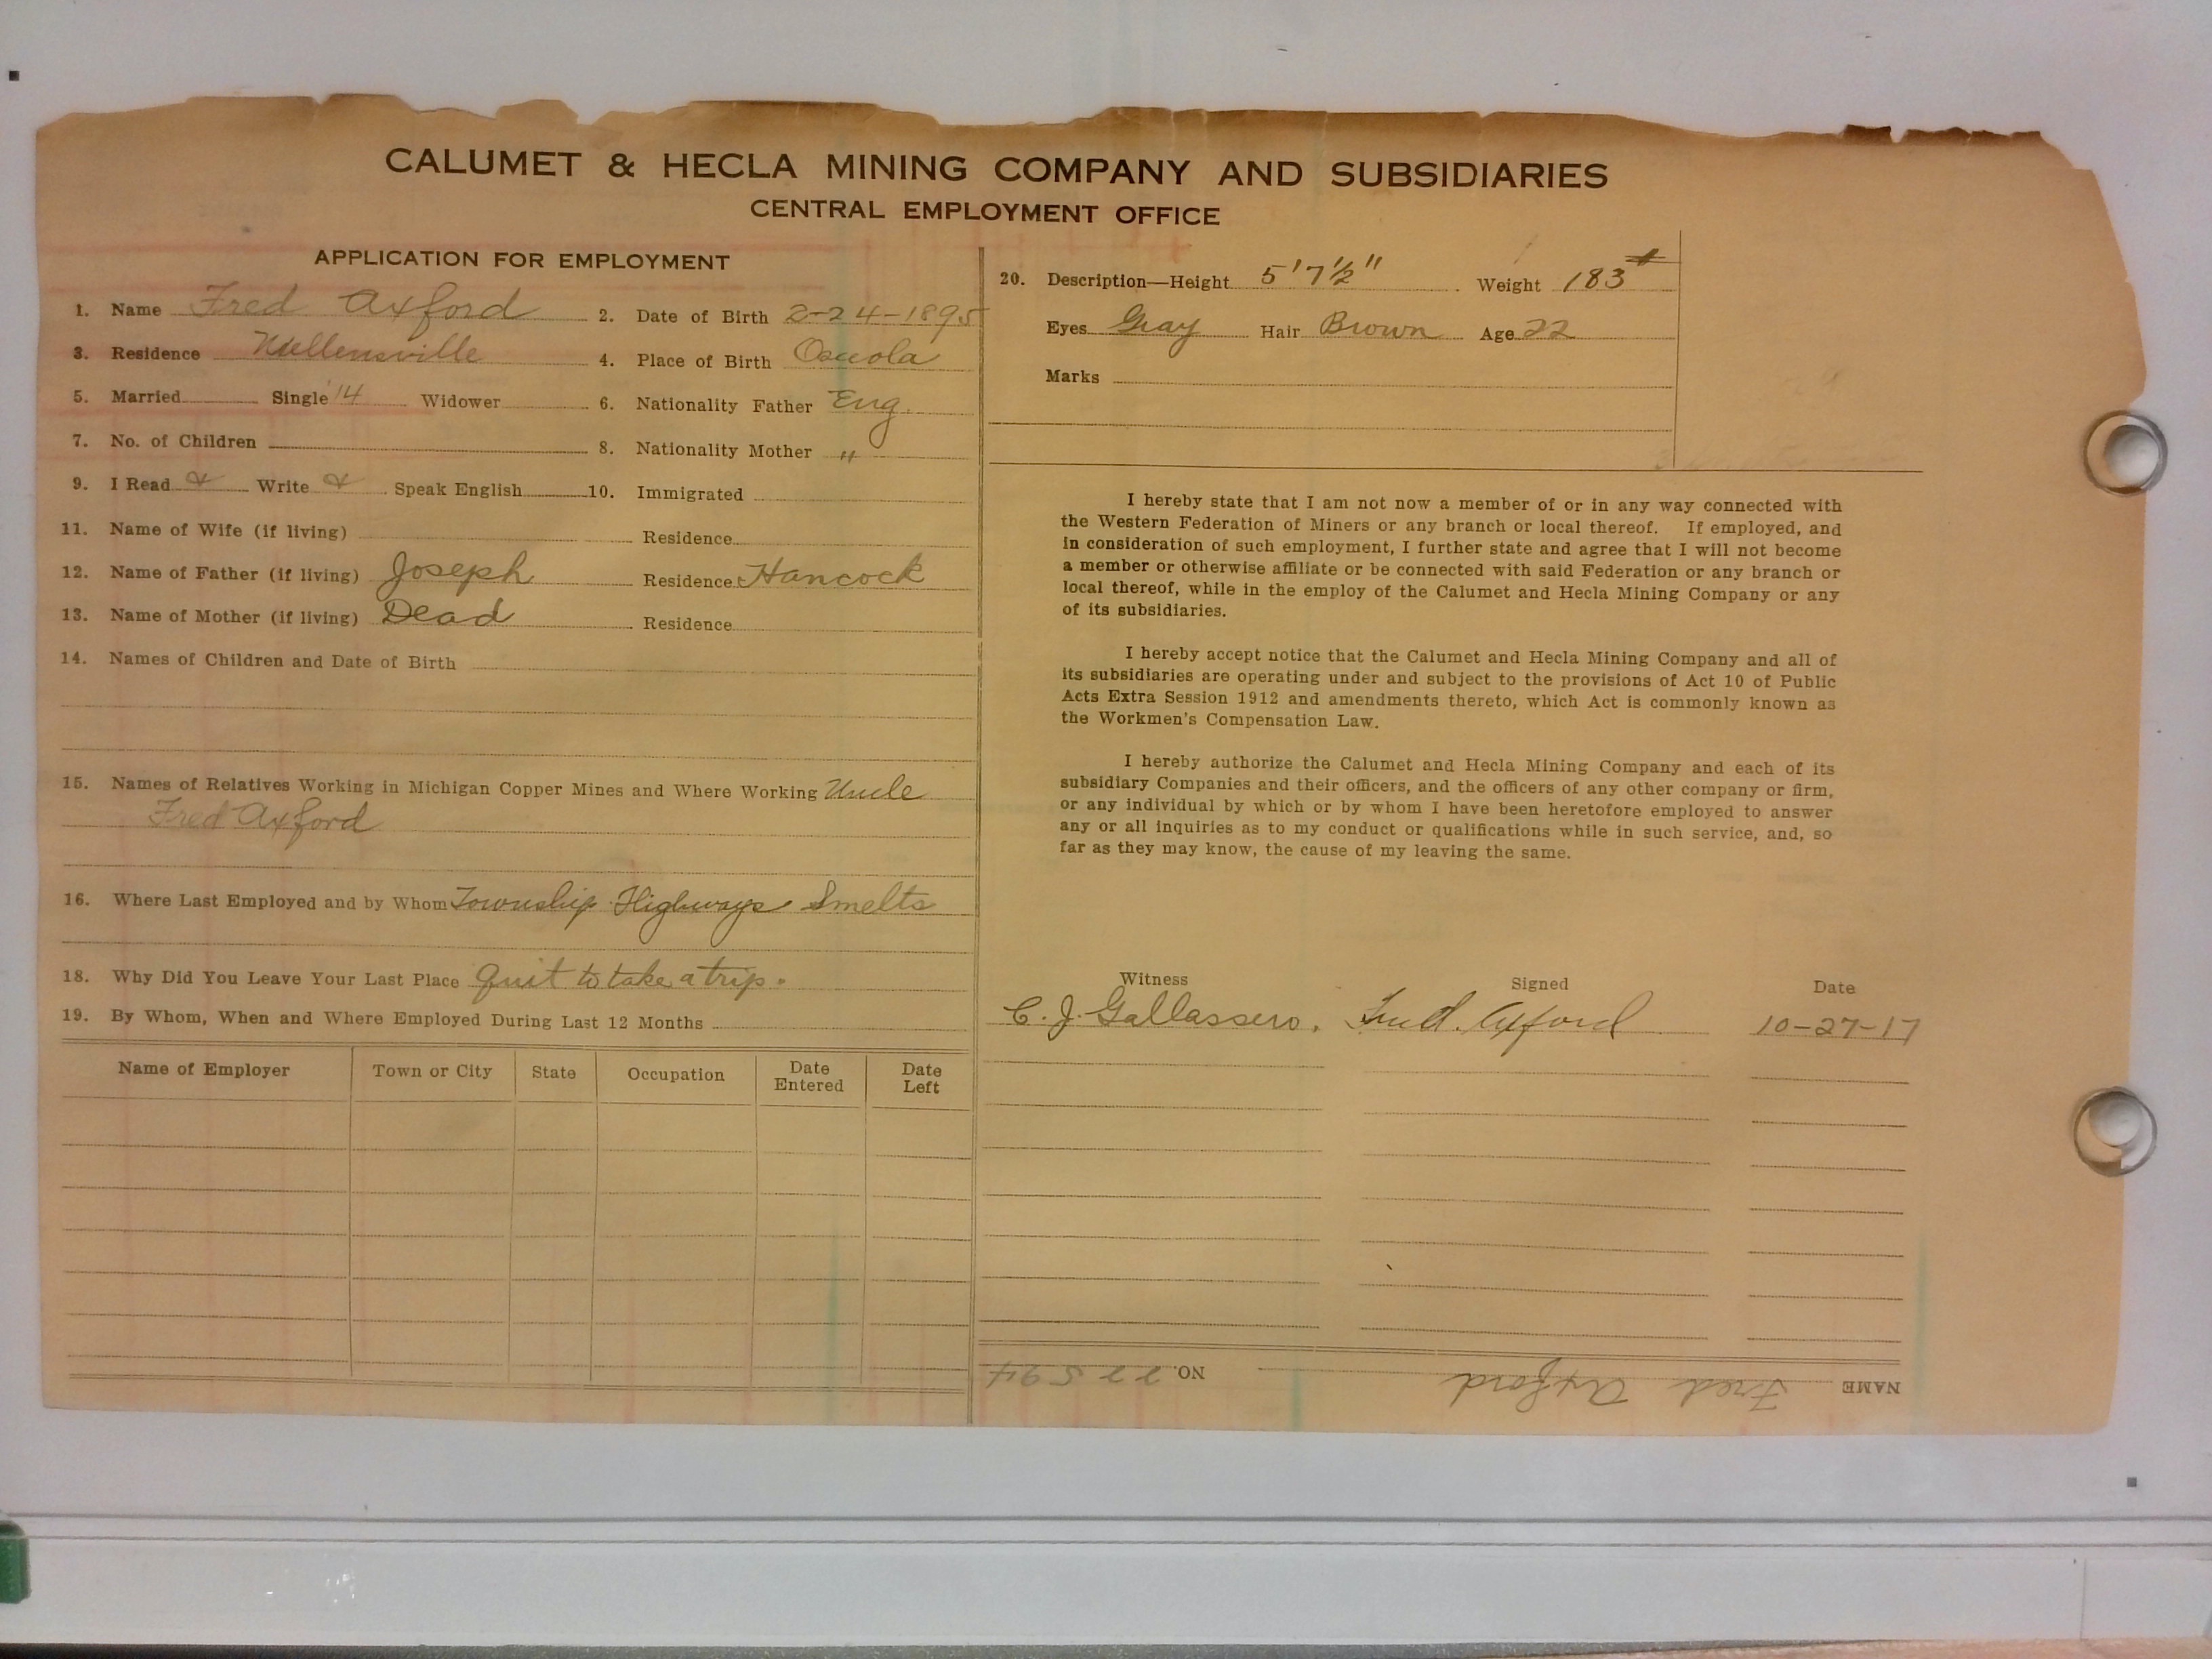 CALUMET & HECLA MINING COMPANY AND SUBSIDIARIES
CENTRAL EMPLOYMENT OFFICE
APPLICATION FOR EMPLOYMENT
1. Name Fred Axford 2. Date of Birth 2-24-1895
3. Residence 4. Place of Birth Osceola
5. Married Single 14 Widower 6. Nationality Father Eng.
7. No. of Children 8. Nationality Mother "
9. I Read Write Speak English 10. Immigrated
11. Name of Wife (if living) Residence
12. Name of Father (if living) Joseph Residence Hancock
13. Name of Mother (if living) Dead Residence
14. Names of Children and Date of Birth
15. Names of Relatives Working in Michigan Copper Mines and Where Working Uncle
Fred Axford
16. Where Last Employed and by Whom Township Highways Smelts
18. Why Did You Leave Your Last Place Quit to take a trip.
19. By Whom, When and Where Employed During Last 12 Months
Name of Employer Town or City State Occupation Date Entered Date Left
20. Description—Height 5'7½" Weight 183#
Eyes Gray Hair Brown Age 22
Marks
I hereby state that I am not now a member of or in any way connected with
the Western Federation of Miners or any branch or local thereof. If employed, and
in consideration of such employment, I further state and agree that I will not become
a member or otherwise affiliate or be connected with said Federation or any branch or
local thereof, while in the employ of the Calumet and Hecla Mining Company or any
of its subsidiaries.
I hereby accept notice that the Calumet and Hecla Mining Company and all of
its subsidiaries are operating under and subject to the provisions of Act 10 of Public
Acts Extra Session 1912 and amendments thereto, which Act is commonly known as
the Workmen's Compensation Law.
I hereby authorize the Calumet and Hecla Mining Company and each of its
subsidiary Companies and their officers, and the officers of any other company or firm,
or any individual by which or by whom I have been heretofore employed to answer
any or all inquiries as to my conduct or qualifications while in such service, and, so
far as they may know, the cause of my leaving the same.
Witness Signed Date
C. J. Gallassero. Fred. Axford 10-27-17
NAME Fred Axford NO. 22594